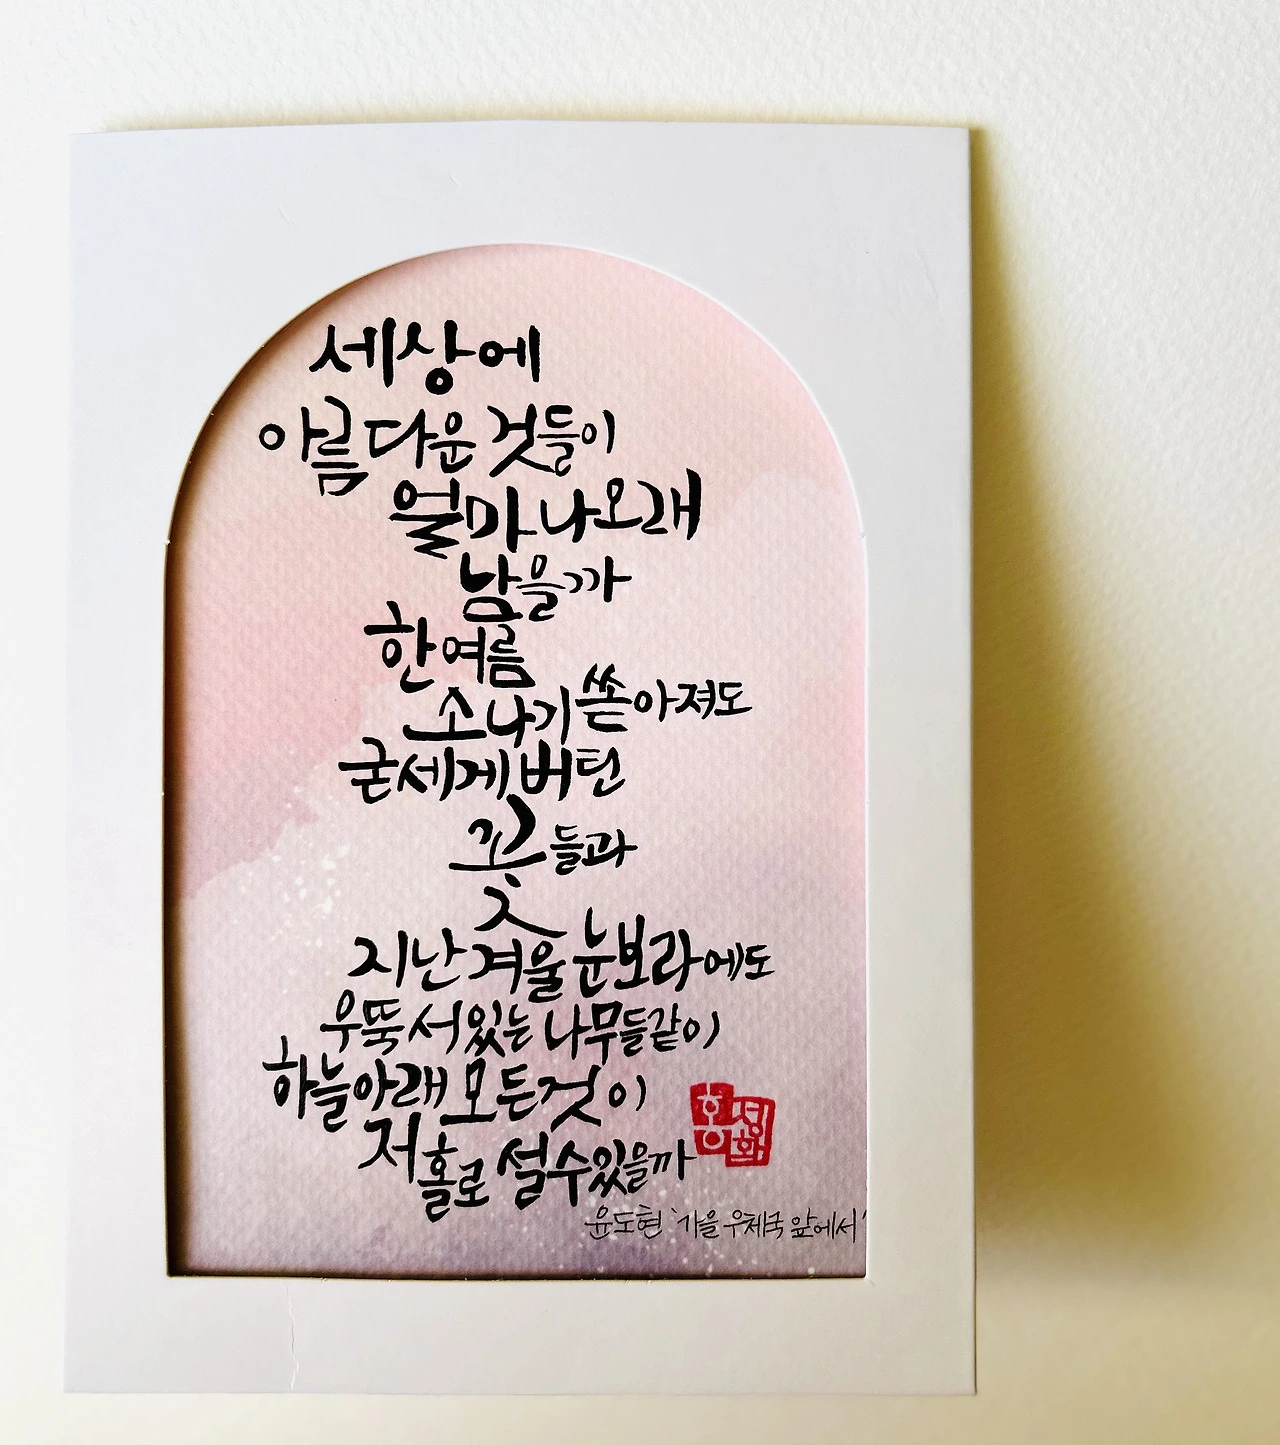 세상에
아름다운 것들이
얼마나 오래
남을까
한여름
소나기 쏟아져도
굳세게 버틴
꽃들과
지난 겨울 눈보라에도
우뚝 서있는 나무들같이
하늘아래 모든것이
저홀로 설수있을까
홍성화
윤도현 '가을 우체국 앞에서'